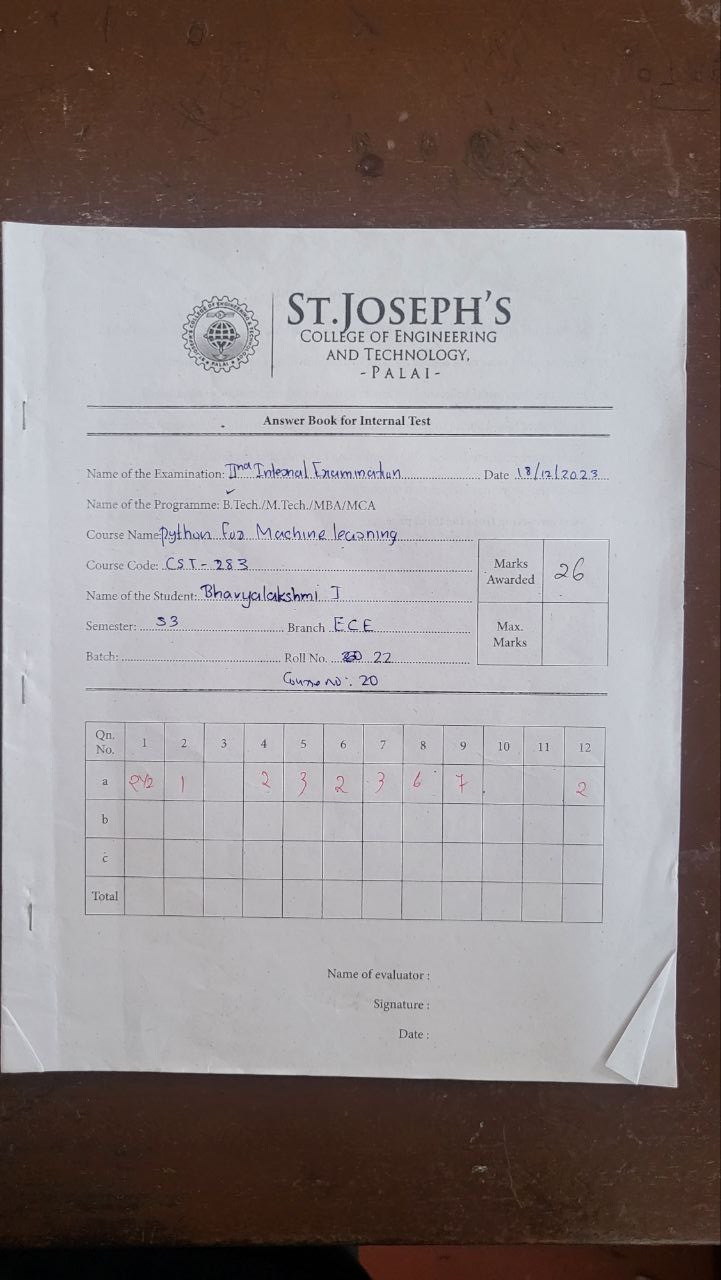 ST.JOSEPH'S
COLLEGE OF ENGINEERING
AND TECHNOLOGY,
- PALAI -
Answer Book for Internal Test
Name of the Examination: IInd Internal Examination Date 18/12/2023
Name of the Programme: B.Tech./M.Tech./MBA/MCA
Course Name: Python for Machine learning
Course Code: CST - 283
Marks Awarded 26
Name of the Student: Bhavyalakshmi J
Semester: S3 Branch ECE
Max. Marks
Batch: Roll No. 22
Course no: 20
Qn. No. 1 2 3 4 5 6 7 8 9 10 11 12
a 2½ 1 2 3 2 3 6 7 2
b
c
Total
Name of evaluator :
Signature :
Date :